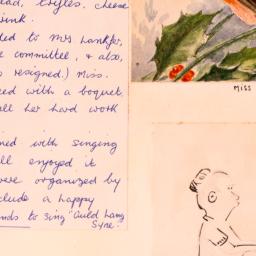 ead, trifles, cheese
ink.
ded to Mrs
e committee, & also,
resigned.) Miss.
ed with a boquet
all her hard work
ned with singing
ll enjoyed it
were organized by
clude a happy
nds to sing "Auld Lang
Syne.
MISS